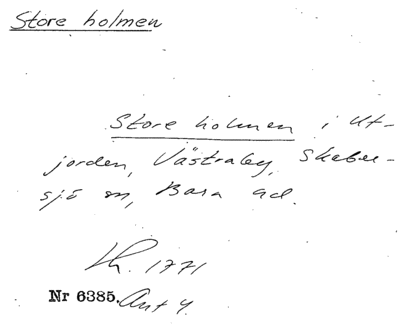 Store holmen
Store holmen i Ut-
jorden, Västraby, Skaber-
sjö sn, Bara hd.
Lh. 1771
Nr 6385. Akt 4.